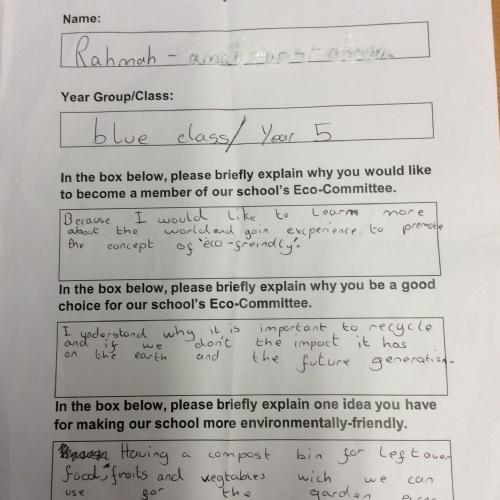 Name:
Rahmah -
Year Group/Class:
blue class/ Year 5
In the box below, please briefly explain why you would like
to become a member of our school's Eco-Committee.
Because I would like to learn more
about the world and gain excperience to promote
the concept of 'eco-freindly'.
In the box below, please briefly explain why you be a good
choice for our school's Eco-Committee.
I understand why it is important to recycle
and if we don't the impact it has
on the earth and the future generation.
In the box below, please briefly explain one idea you have
for making our school more environmentally-friendly.
Having a compost bin for leftover
food, fruits and vegtables wich we can
use for the garden